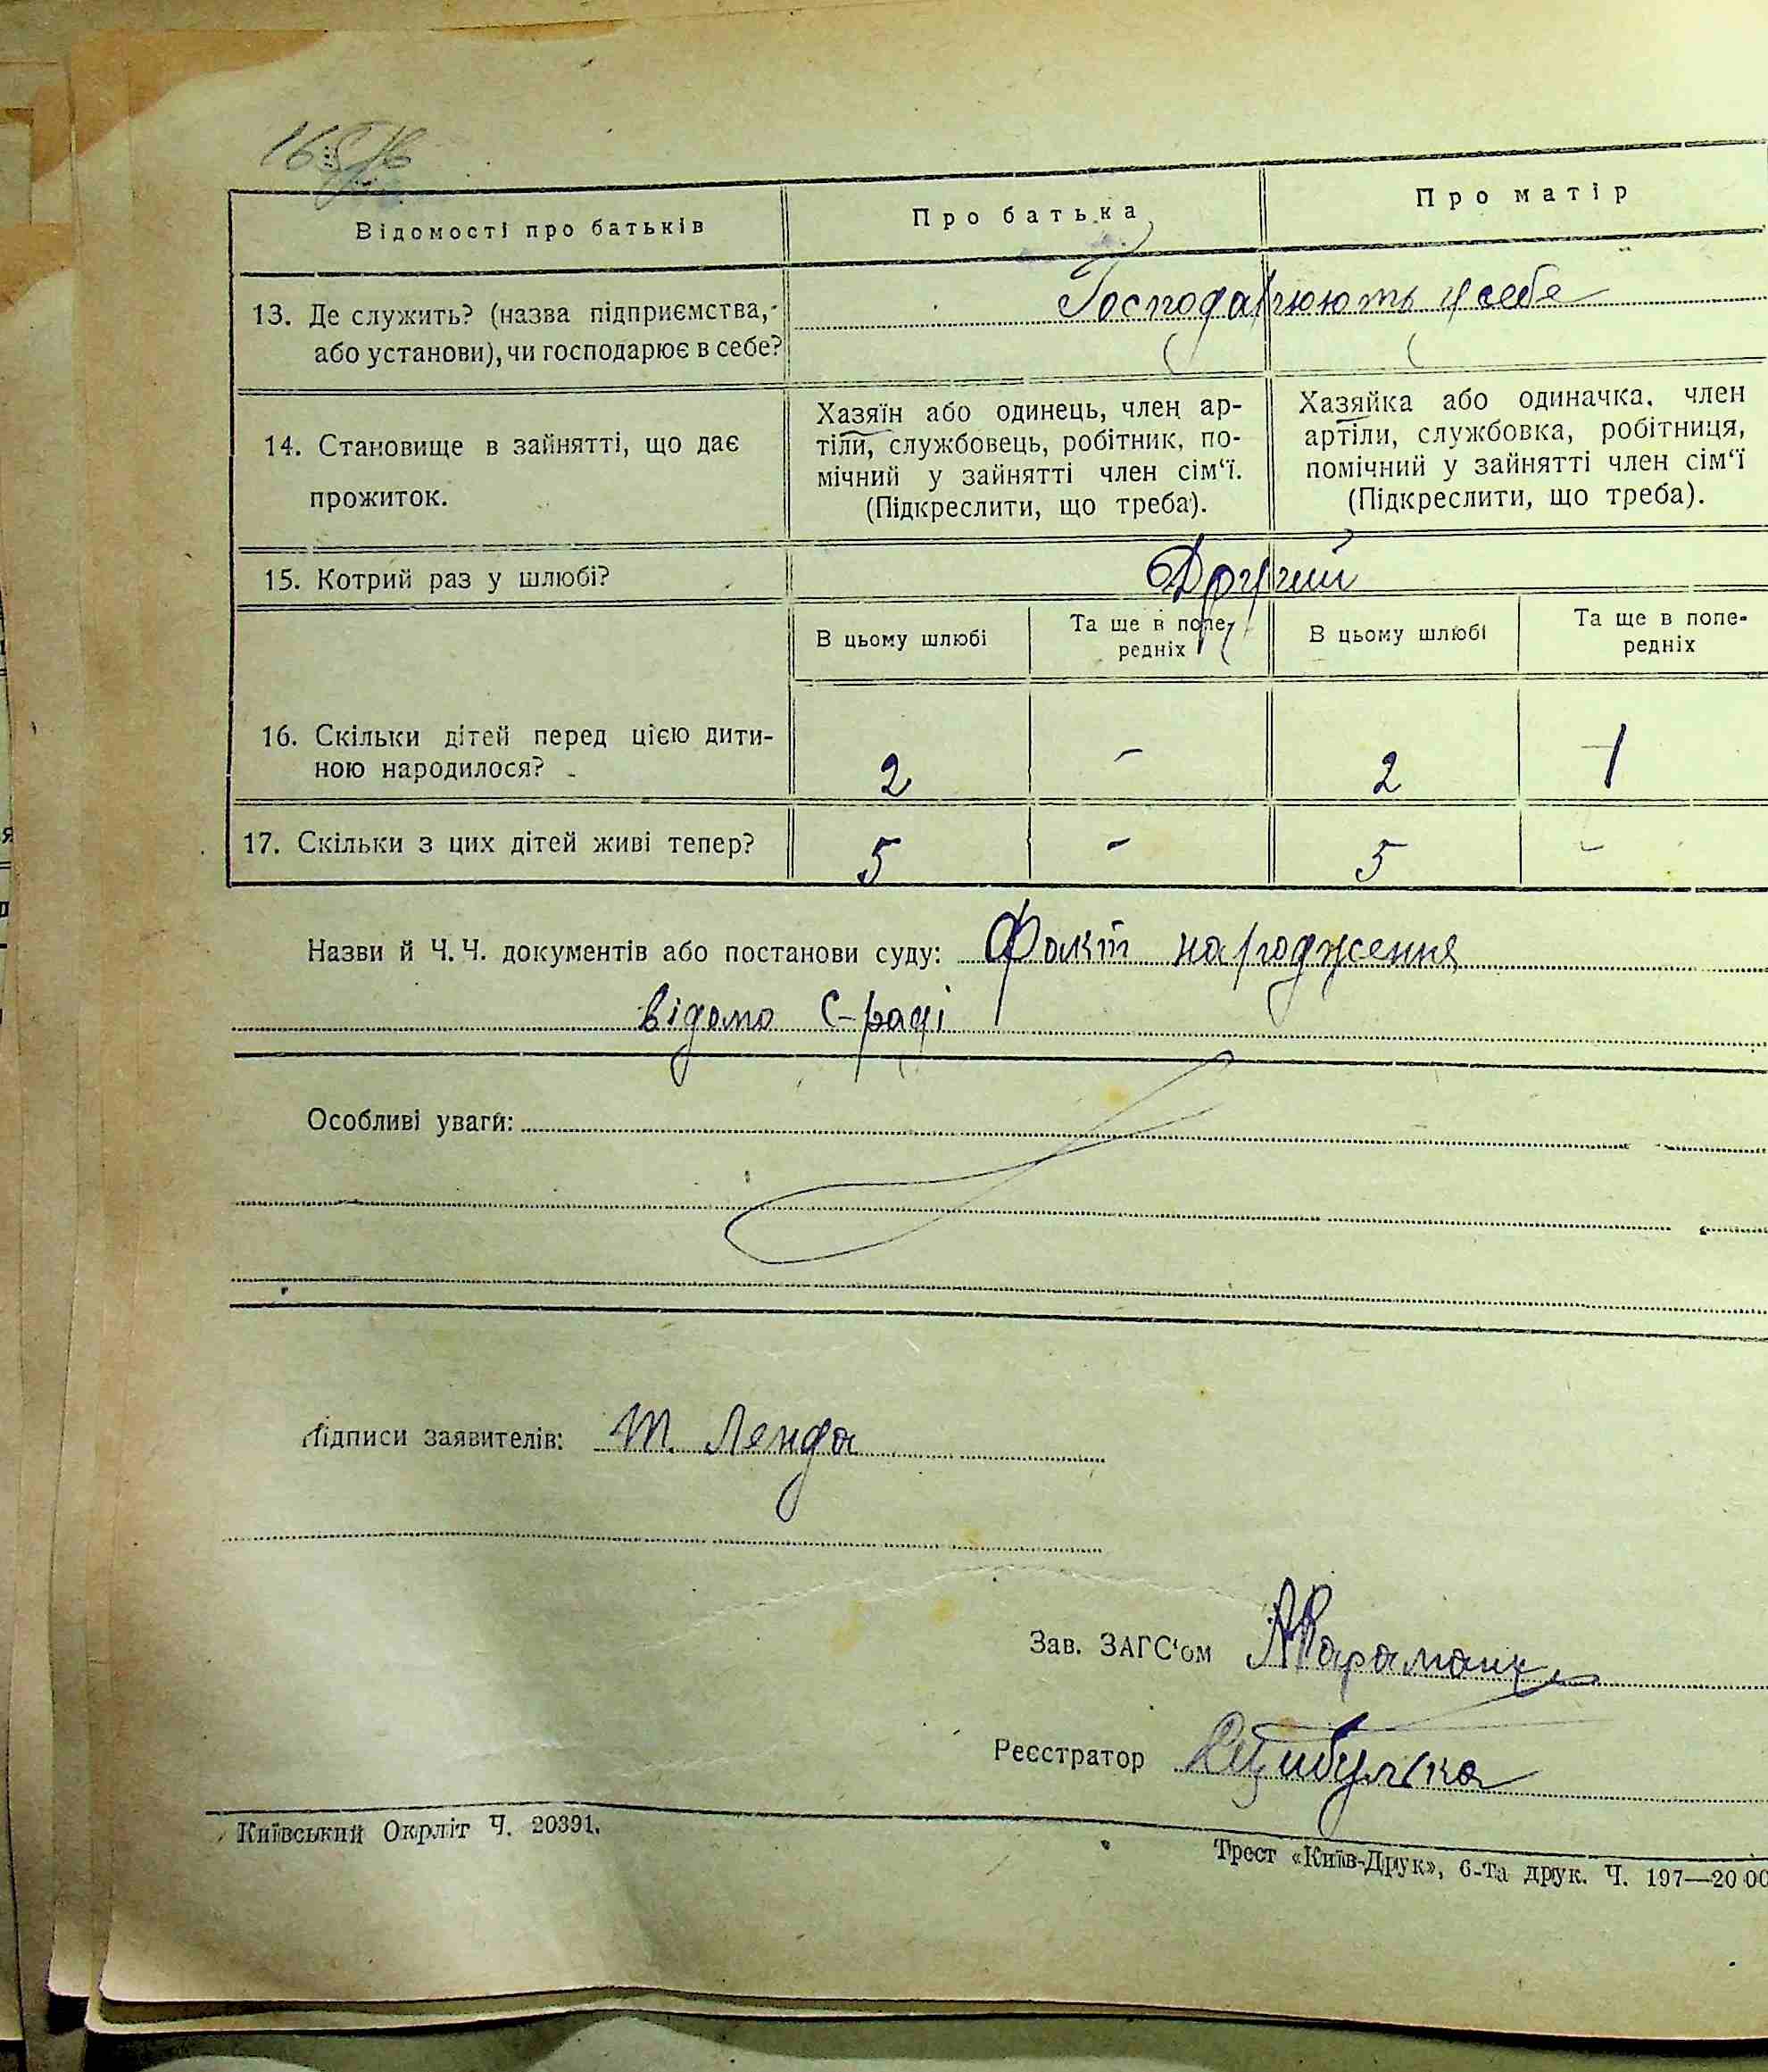 Відомості про батьків
Про батька
Про матір
13. Де служить? (назва підприємства,
або установи), чи господарює в себе?
Господарюють у себе
14. Становище в зайнятті, що дає
прожиток.
Хазяїн або одинець, член ар-
тіли, службовець, робітник, по-
мічний у зайнятті член сім‘ї.
(Підкреслити, що треба).
Хазяйка або одиначка, член
артіли, службовка, робітниця,
помічний у зайнятті член сім‘ї
(Підкреслити, що треба).
15. Котрий раз у шлюбі?
Другий
В цьому шлюбі
Та ще в попе-
редніх
В цьому шлюбі
Та ще в попе-
редніх
16. Скільки дітей перед цією дити-
ною народилося?
2 - 2 1
17. Скільки з цих дітей живі тепер?
5 - 5 -
Назви й Ч. Ч. документів або постанови суду: Факт народження
відомо С-раді
Особливі уваги:
Підписи заявителів: Т. Ленда
Зав. ЗАГС‘ом
Реєстратор
Київський Окрліт Ч. 20391.
Трест «Київ-Друк», 6-та друк. Ч. 197—20 00